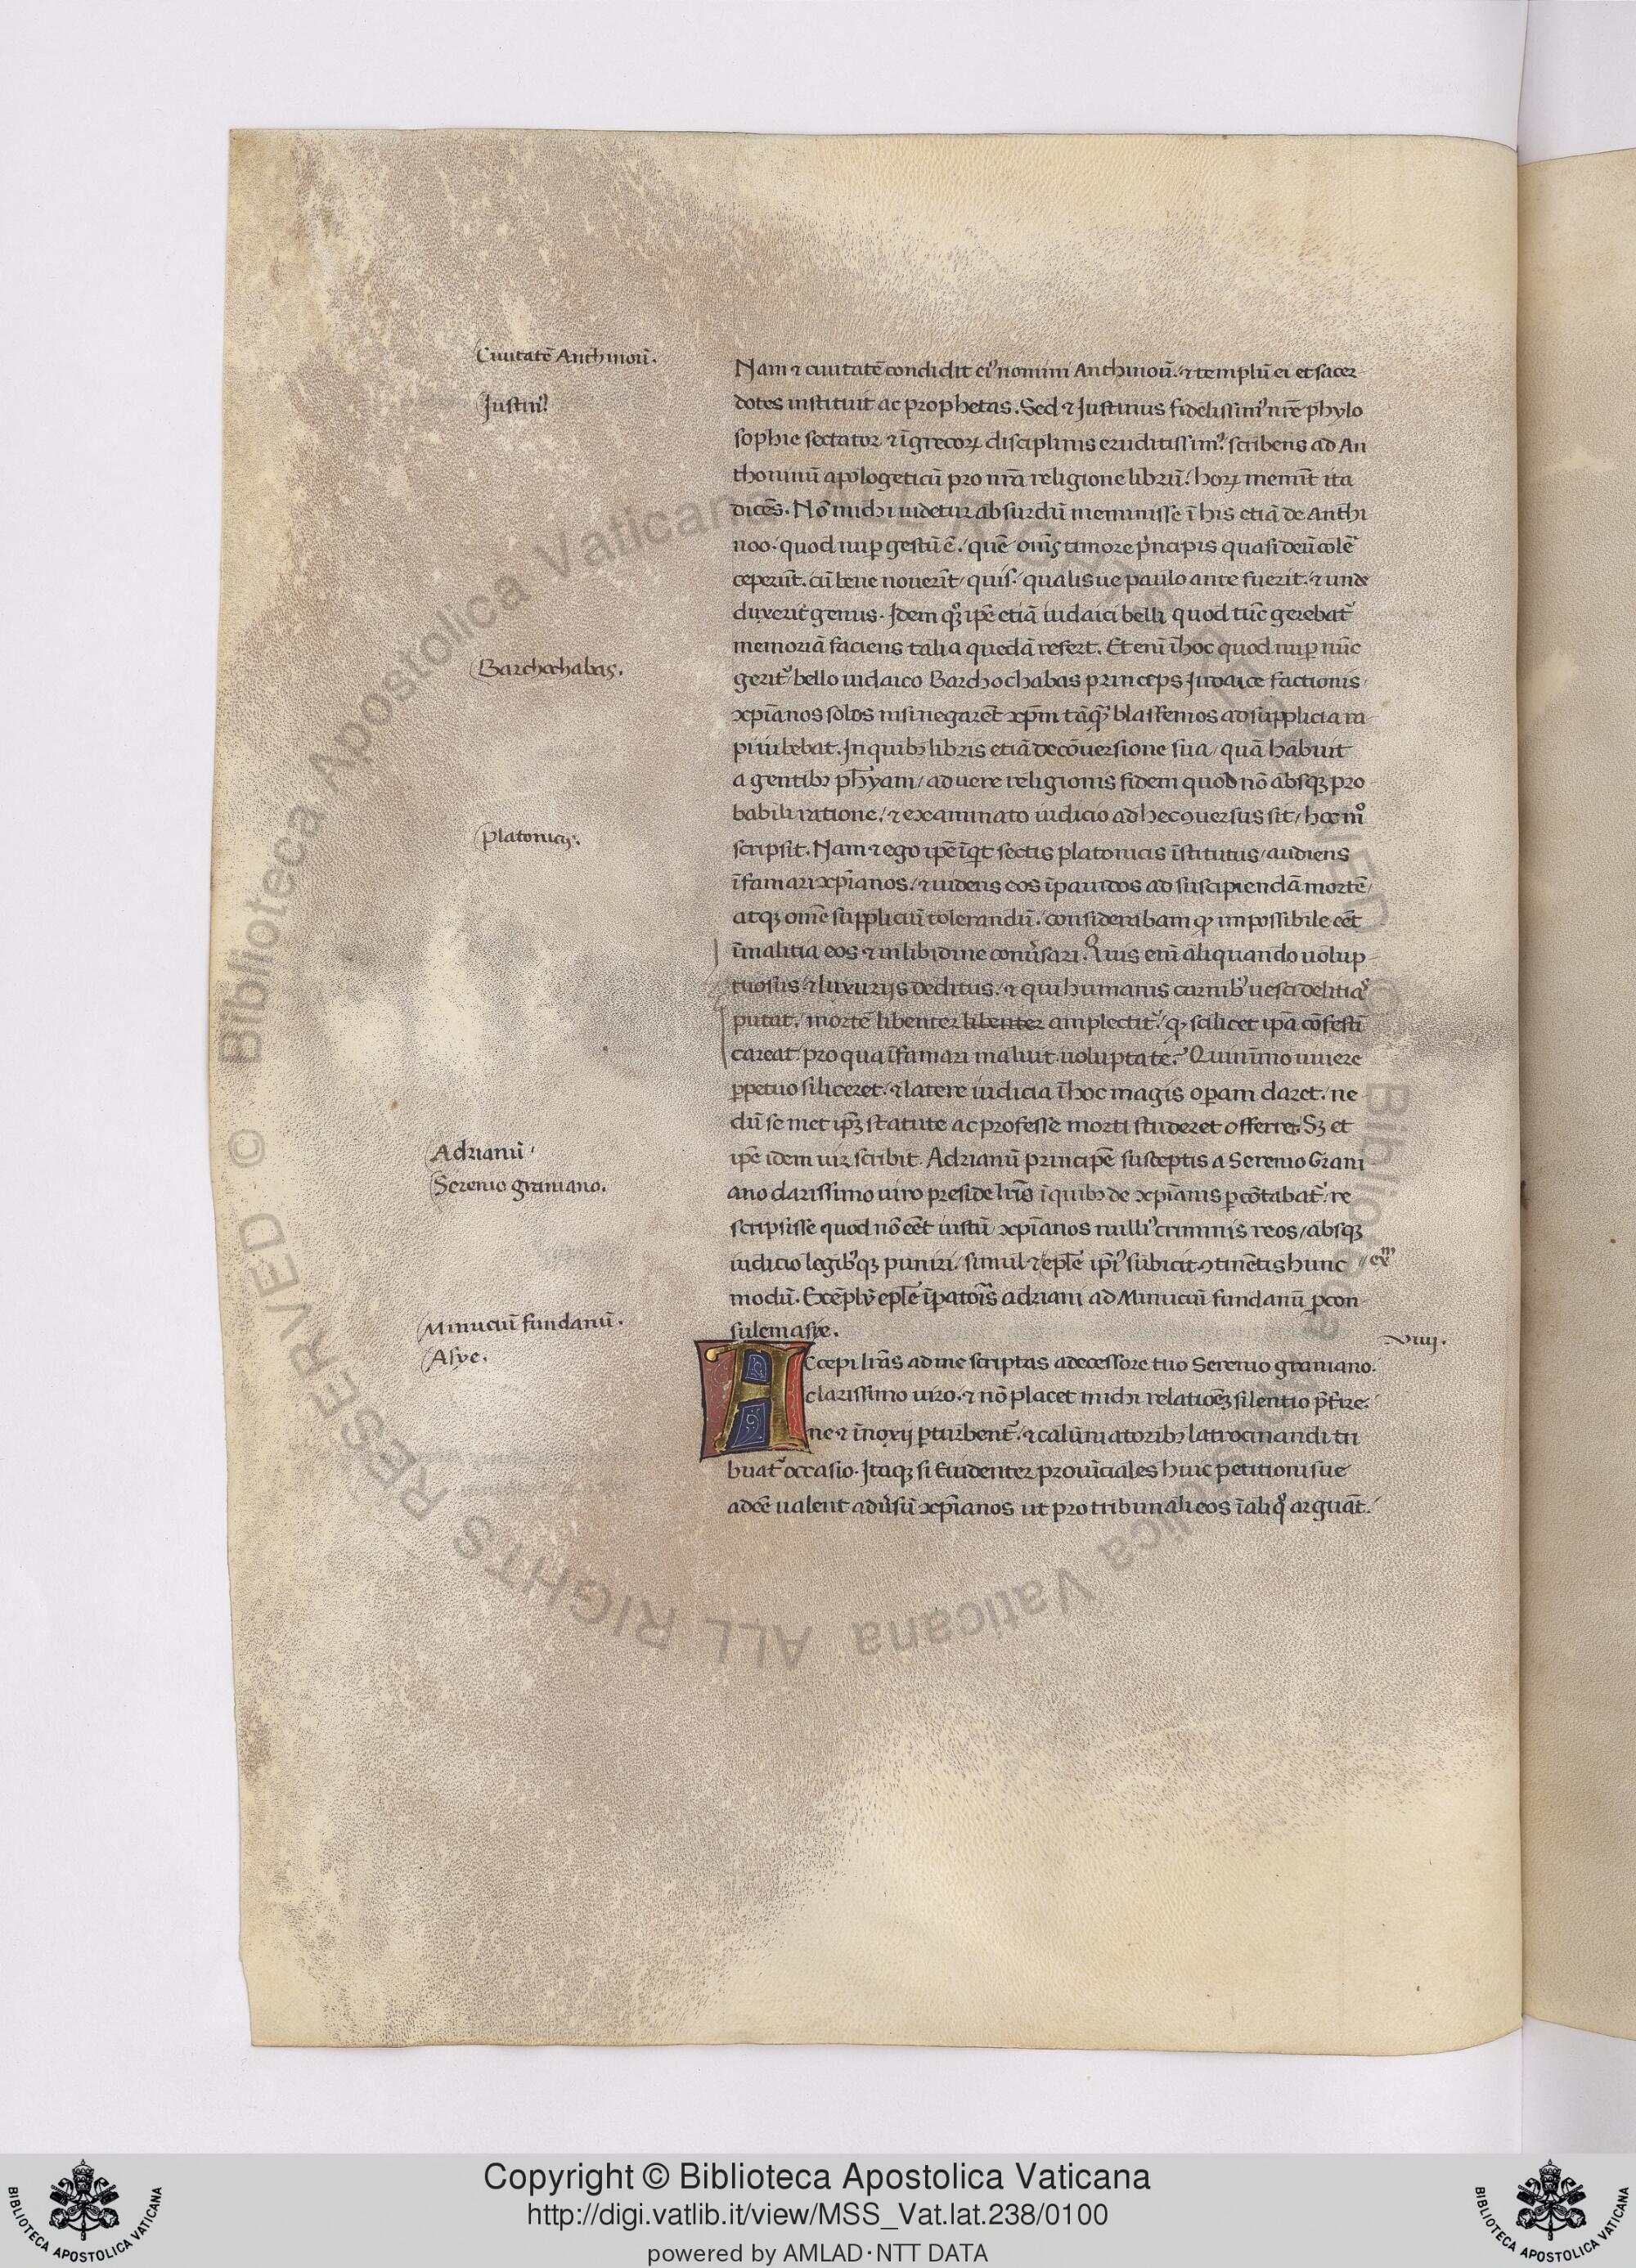 Ciuitatē Anthinoū.
Nam ⁊ ciuitatē condidit eiꝰ nomini Anthinoū. ⁊ templū ei et sacer-
Justinꝰ
dotes instituit ac prophetas. Sed ⁊ Justinus fidelissimꝰ nr̄e phylo
sophie sectator ⁊ ī grecoꝝ disciplinis eruditissimꝰ scribens ad An
thoninū apologeticū pro nr̄a religione librū. hoꝝ memīt ita
dicēs. Nō michi uidetur absurdū meminisse ī his etiā de Anthi
noo. quod nuꝑ gestū ē. quē om̄s timore pͥncipis quasi deū colē
ceperūt. cū bene nouerīt quis. qualisue paulo ante fuerit. ⁊ unde
duxerit genus. Idem qͦꝫ ip̄e etiā iudaici belli quod tūc gerebat᷑
memoriā faciens talia quedā refert. Et enī ī hoc quod nuꝑ nūc
Barchochabas.
gerit᷑ bello iudaico Barchochabas princeps Iudaice factionis
xp̄ianos solos nisi negarēt xp̄m tāqͣꝫ blasfemos ad supplicia ra
pi iubebat. In quibꝫ libris etiā de cōuersione sua quā habuit
a gentibꝫ ph̄yam ad uere religionis fidem quod nō absqꝫ pro
babili ratione. ⁊ examinato iudicio ad hec ꝯuersus sit hoc mͦ
Platonicis.
scripsit. Nam ⁊ ego ip̄e īqt sectis platonicis īstitutus audiens
īfamari xp̄ianos. ⁊ uidens eos īpauidos ad suscipiendā mortē
atqꝫ om̄e suppliciū tolerandū. considerabam ꝙ impossibile eēt
ī malitia eos ⁊ in libidine conuͥsari. Quis enī aliquando uolup-
tuosus ⁊ luxurijs deditus. ⁊ qui humanis carnibꝰ uesci delitias
putat. mortē libenter libenter amplectit᷑. ꝙ scilicet ip̄a cōfestī
careat pro qua īfamari maluit uoluptate. Quinīmo uiuere
ꝑpetuo si liceret. ⁊ latere iudicia ī hoc magis oꝑam daret. ne
dū se met ip̄ꝫ statute ac professe morti studeret offerre. Sꝫ et
Adrianū
ip̄e idem uir scribit. Adrianū principē susceptis a Serenio Grani
Serenio graniano.
ano clarissimo uiro preside lr̄is ī quibꝫ de xp̄ianis ꝑcōtabat᷑. re
scripsisse quod nō eēt iustū xp̄ianos nulliꝰ criminis reos absqꝫ
iudicio legibꝰqꝫ puniri. simul ⁊ epl̄e ip̄iꝰ subicit ꝯtinētis hunc ex̄m
modū. Exēplū epl̄e īpatoris adriani ad Minuciū fundanū ꝓcon-
Minuciū fundanū.
sulem asye.
Asye.
Accepi lr̄as ad me scriptas a decessore tuo Serenio graniano.
viiij.
clarissimo uiro. ⁊ nō placet michi relatiōeꝫ silentio p̄t̄ire.
ne ⁊ īnoxij ꝑturbent᷑. ⁊ calūniatoribꝫ latrocinandi tri
buat᷑ occasio. Itaqꝫ si euidenter prouīciales huic petitioni sue
adeē ualent aduͥsū xp̄ianos ut pro tribunali eos ī aliqͦ arguāt.
Copyright © Biblioteca Apostolica Vaticana
http://digi.vatlib.it/view/MSS_Vat.lat.238/0100
powered by AMLAD·NTT DATA
BIBLIOTECA APOSTOLICA VATICANA
BIBLIOTECA APOSTOLICA VATICANA